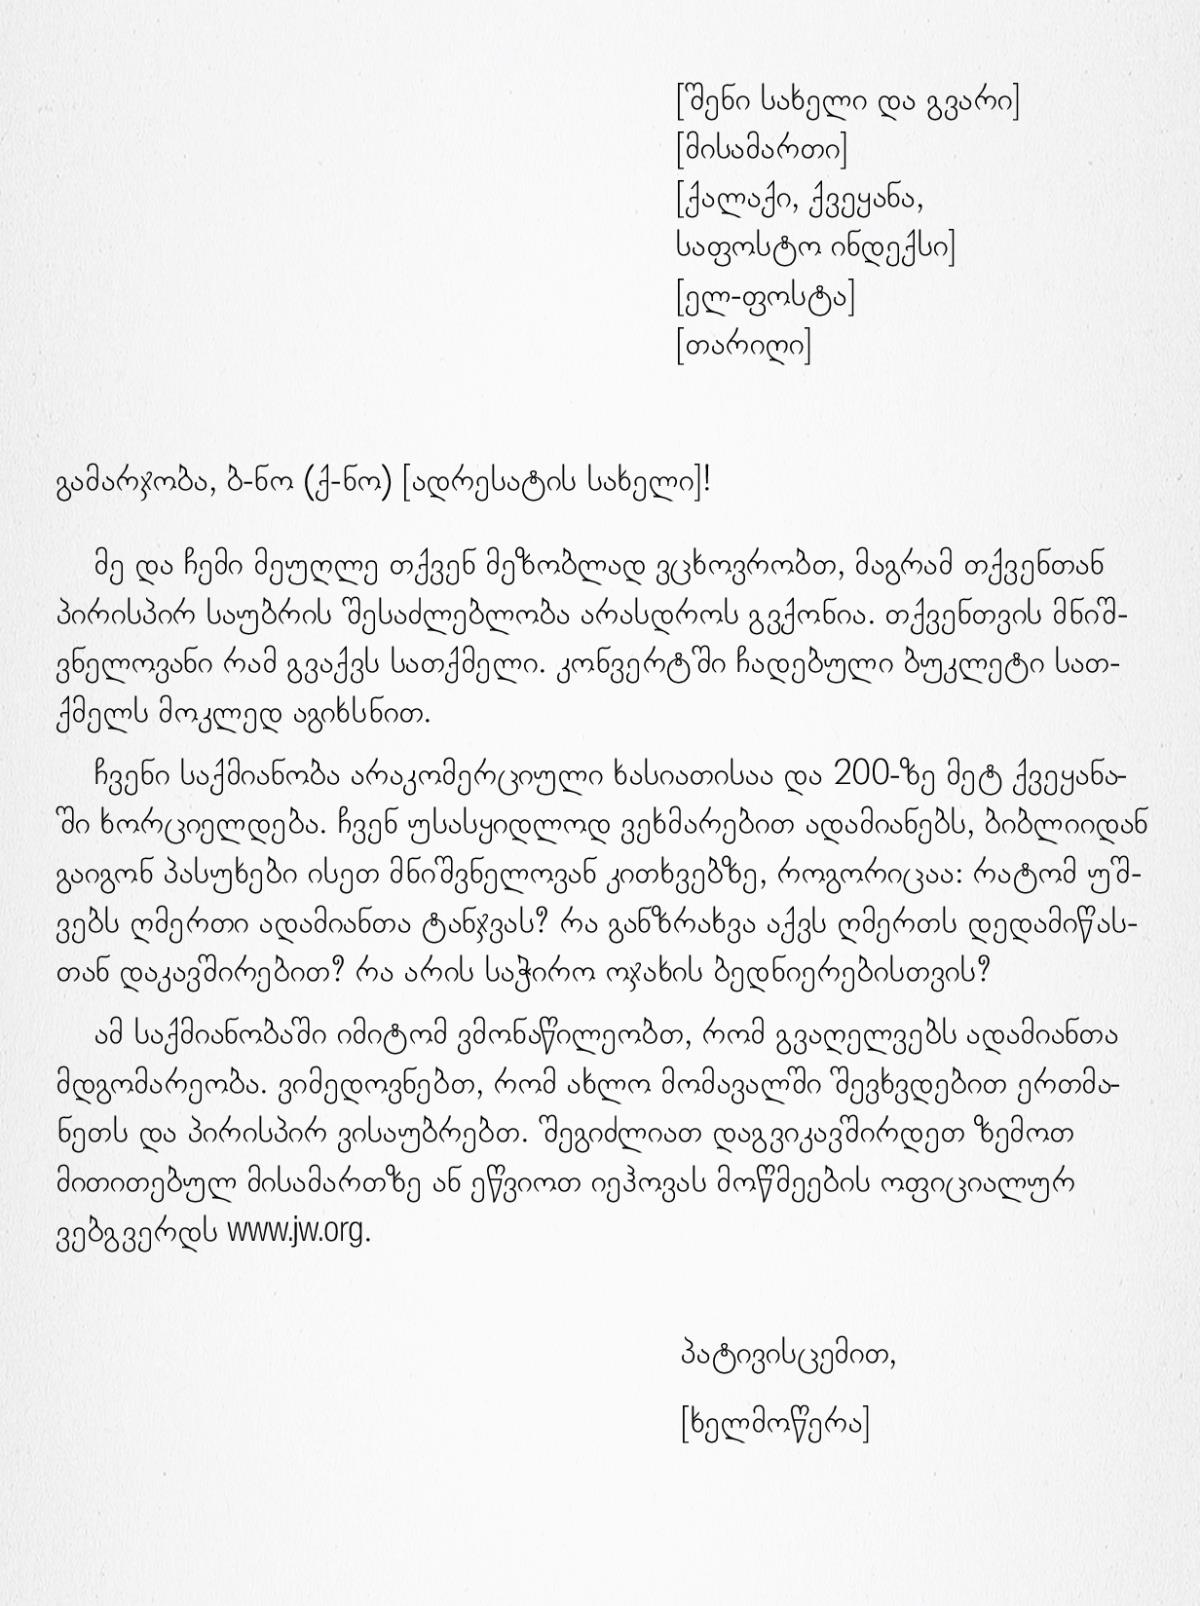 [შენი სახელი და გვარი]
[მისამართი]
[ქალაქი, ქვეყანა,
საფოსტო ინდექსი]
[ელ-ფოსტა]
[თარიღი]
გამარჯობა, ბ-ნო (ქ-ნო) [ადრესატის სახელი]!
მე და ჩემი მეუღლე თქვენ მეზობლად ვცხოვრობთ, მაგრამ თქვენთან
პირისპირ საუბრის შესაძლებლობა არასდროს გვქონია. თქვენთვის მნიშ-
ვნელოვანი რამ გვაქვს სათქმელი. კონვერტში ჩადებული ბუკლეტი სათ-
ქმელს მოკლედ აგიხსნით.
ჩვენი საქმიანობა არაკომერციული ხასიათისაა და 200-ზე მეტ ქვეყანა-
ში ხორციელდება. ჩვენ უსასყიდლოდ ვეხმარებით ადამიანებს, ბიბლიიდან
გაიგონ პასუხები ისეთ მნიშვნელოვან კითხვებზე, როგორიცაა: რატომ უშ-
ვებს ღმერთი ადამიანთა ტანჯვას? რა განზრახვა აქვს ღმერთს დედამიწას-
თან დაკავშირებით? რა არის საჭირო ოჯახის ბედნიერებისთვის?
ამ საქმიანობაში იმიტომ ვმონაწილეობთ, რომ გვაღელვებს ადამიანთა
მდგომარეობა. ვიმედოვნებთ, რომ ახლო მომავალში შევხვდებით ერთმა-
ნეთს და პირისპირ ვისაუბრებთ. შეგიძლიათ დაგვიკავშირდეთ ზემოთ
მითითებულ მისამართზე ან ეწვიოთ იეჰოვას მოწმეების ოფიციალურ
ვებგვერდს www.jw.org.
პატივისცემით,
[ხელმოწერა]